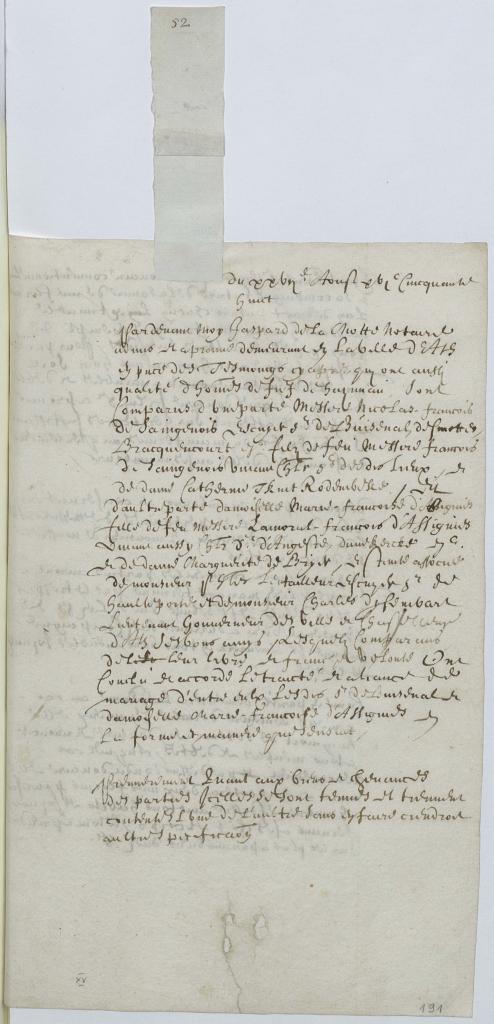 52
Du xxvije Aoust xvjc Cincquante
huict
Pardevant moy Gaspard de la Motte Notaire
admis et approuvé demeurant en la ville d'Ath
en pnce des Tesmoings cy après qui ont aussy
qualité d'homes de fief de haynnau sont
Comparus d'une parte Messire Nicolas francois
de Saingenois Escuyer sr de Buisenal des mottes
Bracquencourt filz de feu Messire francois
de Saingenois vivant Chlr sr desdis lieux et
de dame Catherine Rodembeke Et
d'aultre parte damoiselle Marie francoise d'Assignies
fille de feu Messire Lamoral francois d'Assignies
vivant aussy Chlr sr d'Angeste etc.
et de dame Marguerite de et assistée
de monsieur le tailleur escuyer sr de
haulteporte et de monsieur Charles
Lieutenant Gouverneur des ville et Chastellenye
d'Ath ses bons amys Lesquels Comparans
de leur libre et franche volonté Ont
Conclu et accordé le traicté et aliance de
mariage d'entre eulx lesdis sr de Buisenal et
damoiselle Marie francoise d'Assignies en
la forme et maniere que sensuit
Premierement Quant aux biens et chevances
des parties Icelles se sont tenues et tiennent
contentes l'une de l'aultre sans en faire cy endroit
aultre speciffication
xv
191